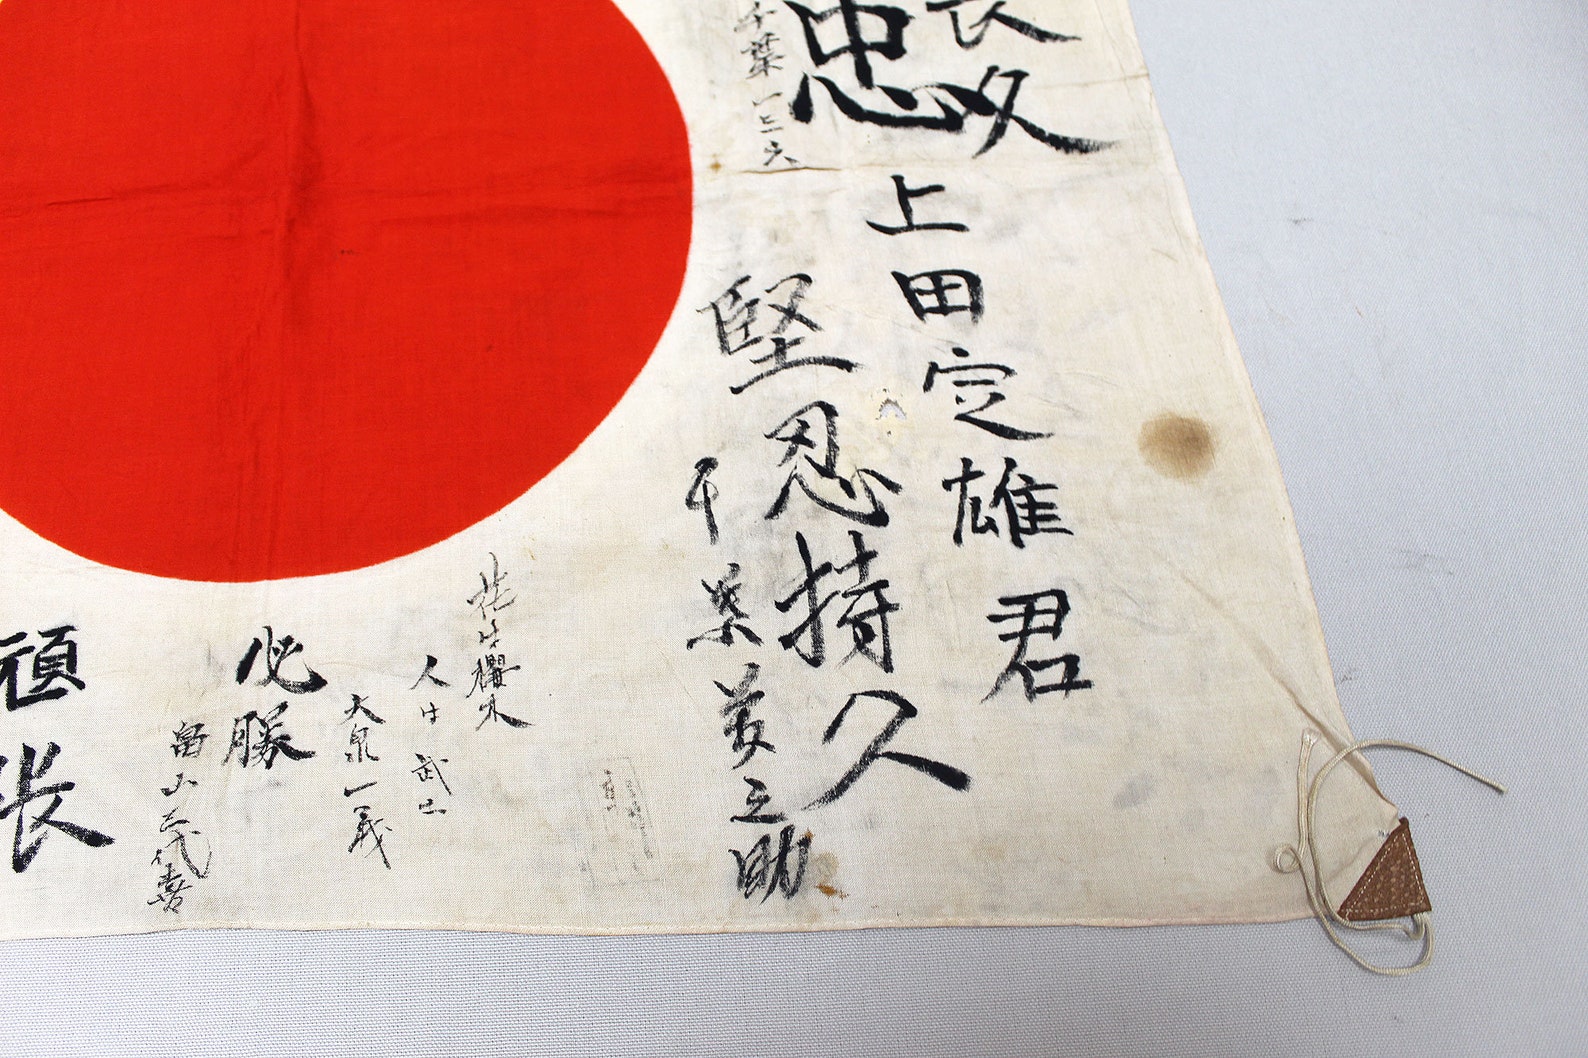 長久
上田定雄君
忠
堅忍持久
千葉一三六
千葉美之助
花は櫻木
人は武士
大泉一義
必勝
畠山三代喜
頑張